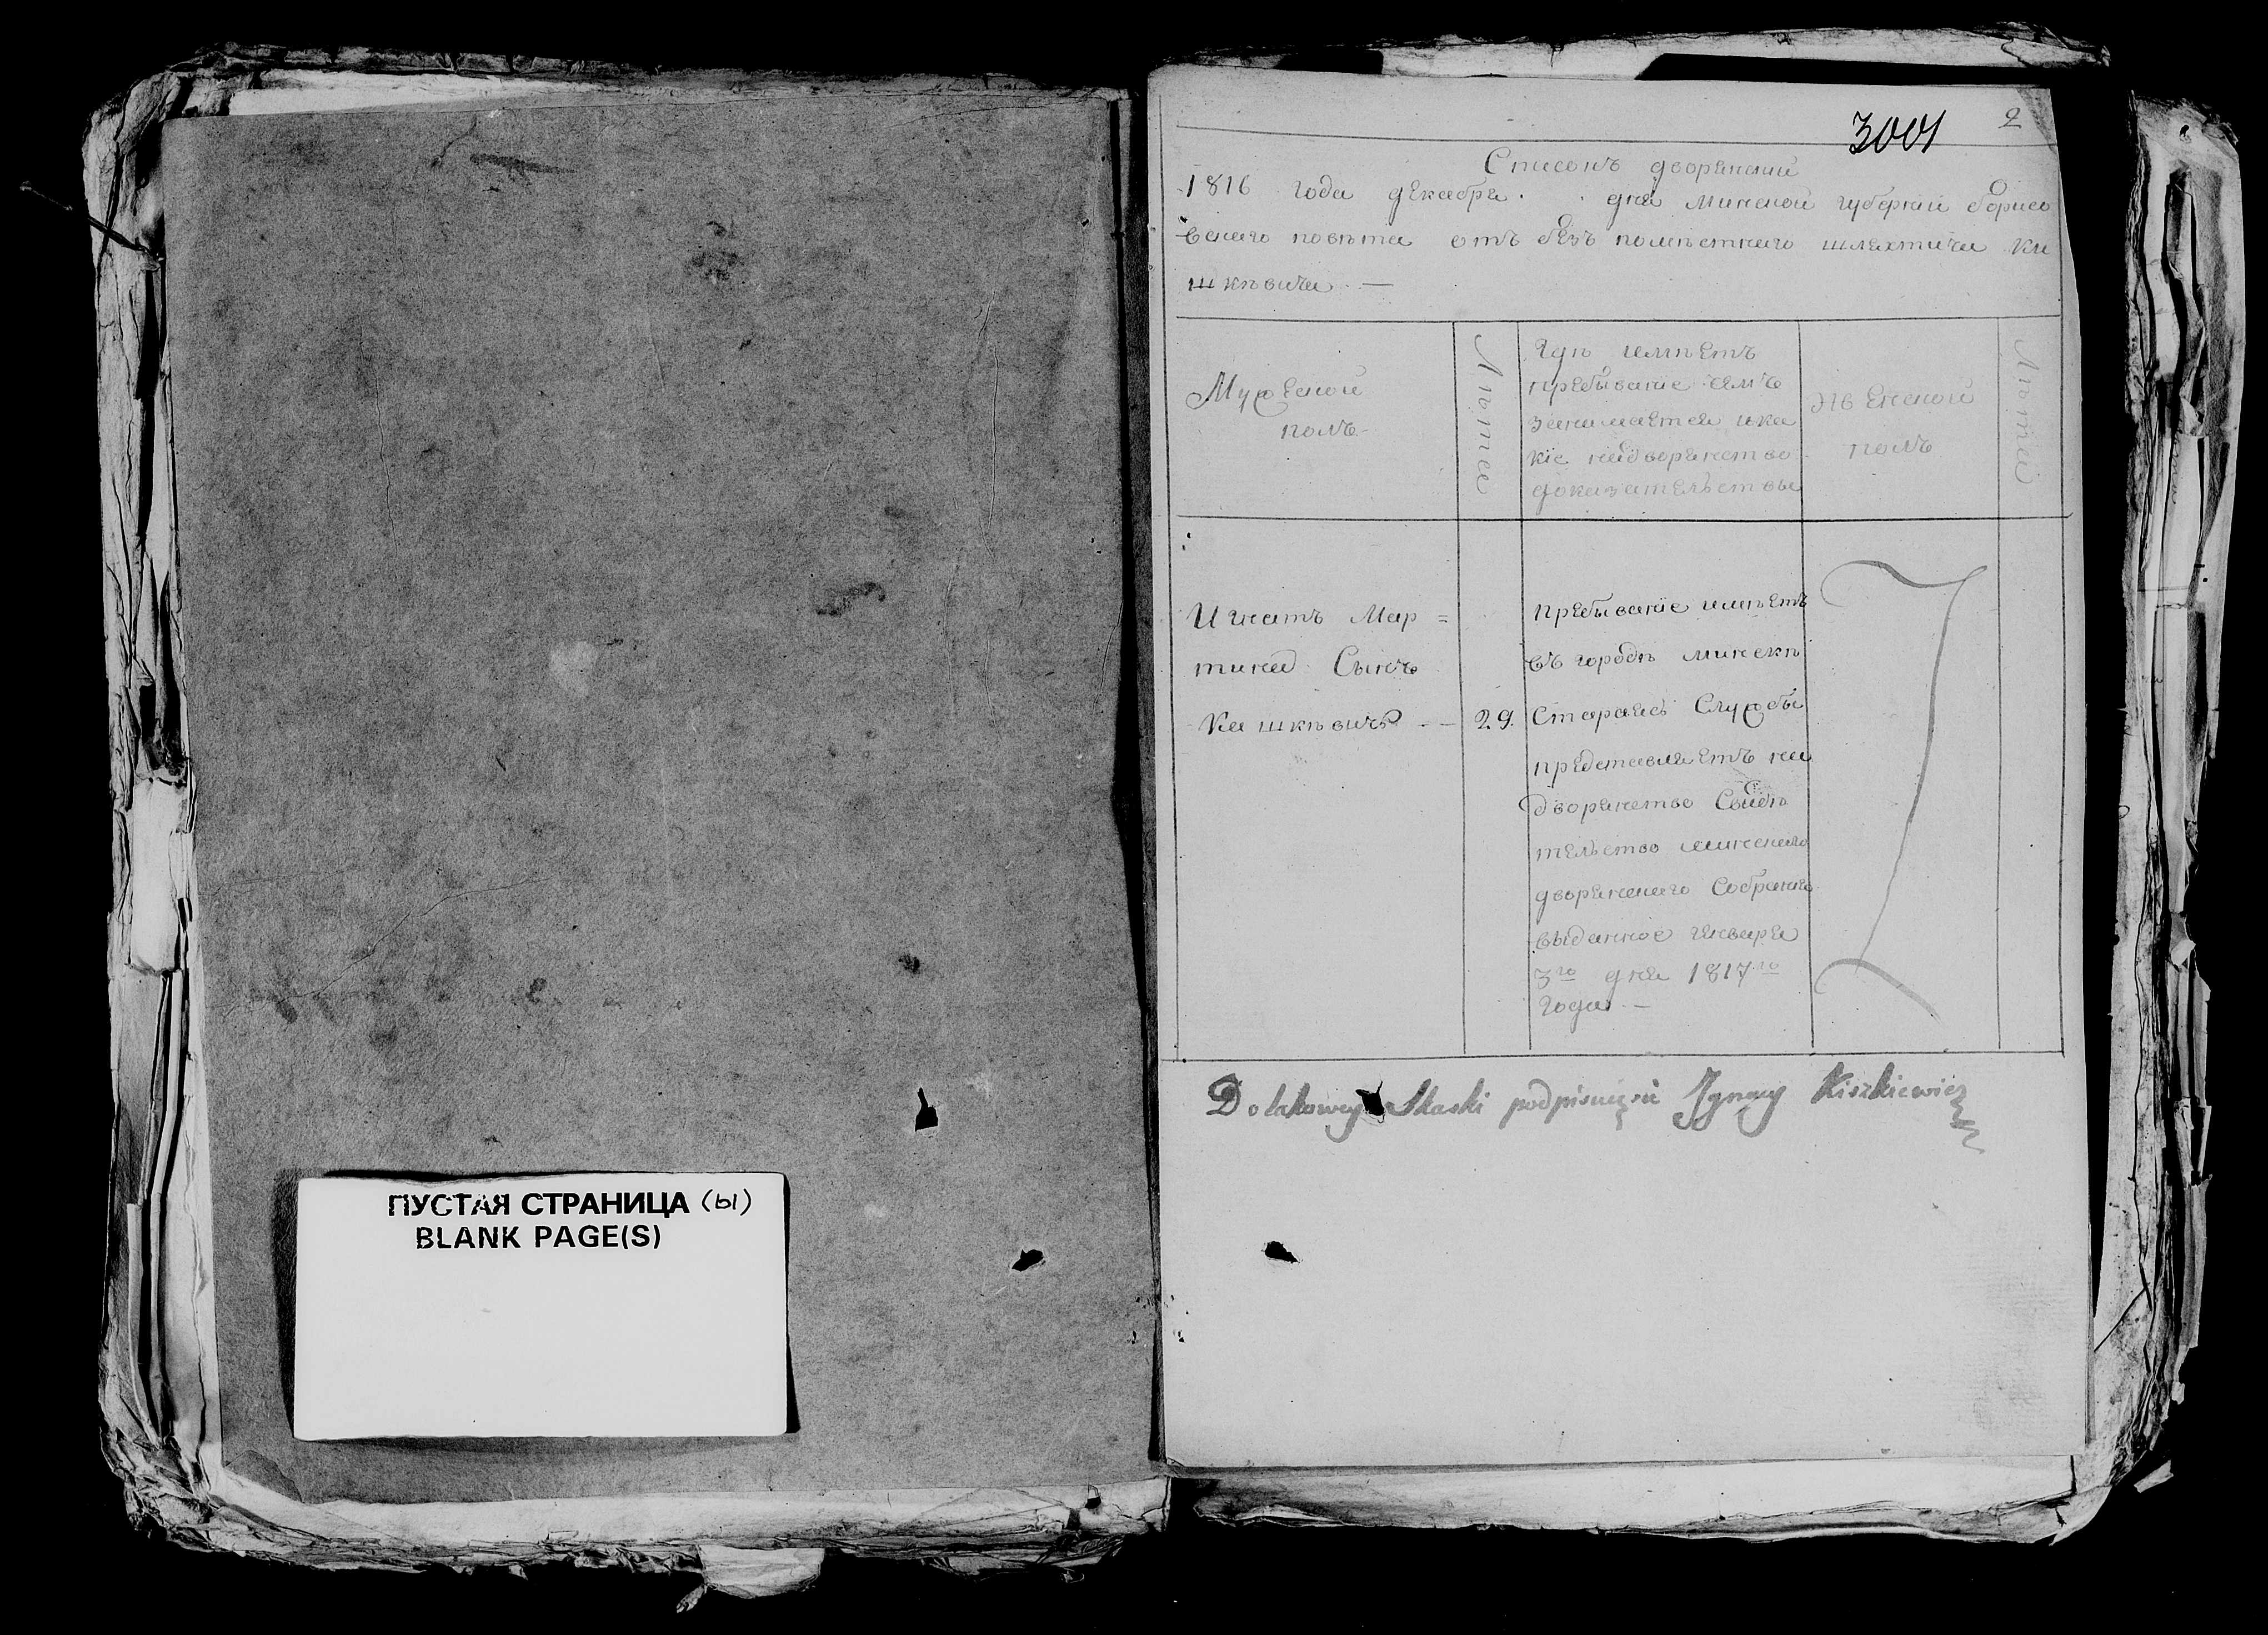 ПУСТАЯ СТРАНИЦА (ы)
BLANK PAGE(S)
3001
2
Списокъ дворянский
1816 года декабря . . дня минской губернии борисо
вскаго повѣта отъ безъ помѣстнаго шляхтича Ки
шкѣвича —
Мужеской
полъ
Лѣта
Гдѣ имѣетъ
пребывание чемъ
занимается и ка
кіе на дворянство
доказательствы
Женской
полъ
Лѣта
Игнатъ Мар =
тина Сынъ
Кишкѣвичъ — 29.
пребываніе имѣетъ
въ городѣ минскѣ
стараясь Службы
представляетъ на
дворянство Свидѣ
тельство минскаго
дворянскаго Собрания
выданное января
3го дня 1817го
года —
Do takowey Skaski podpisuię się Ignacy Kiszkiewicz